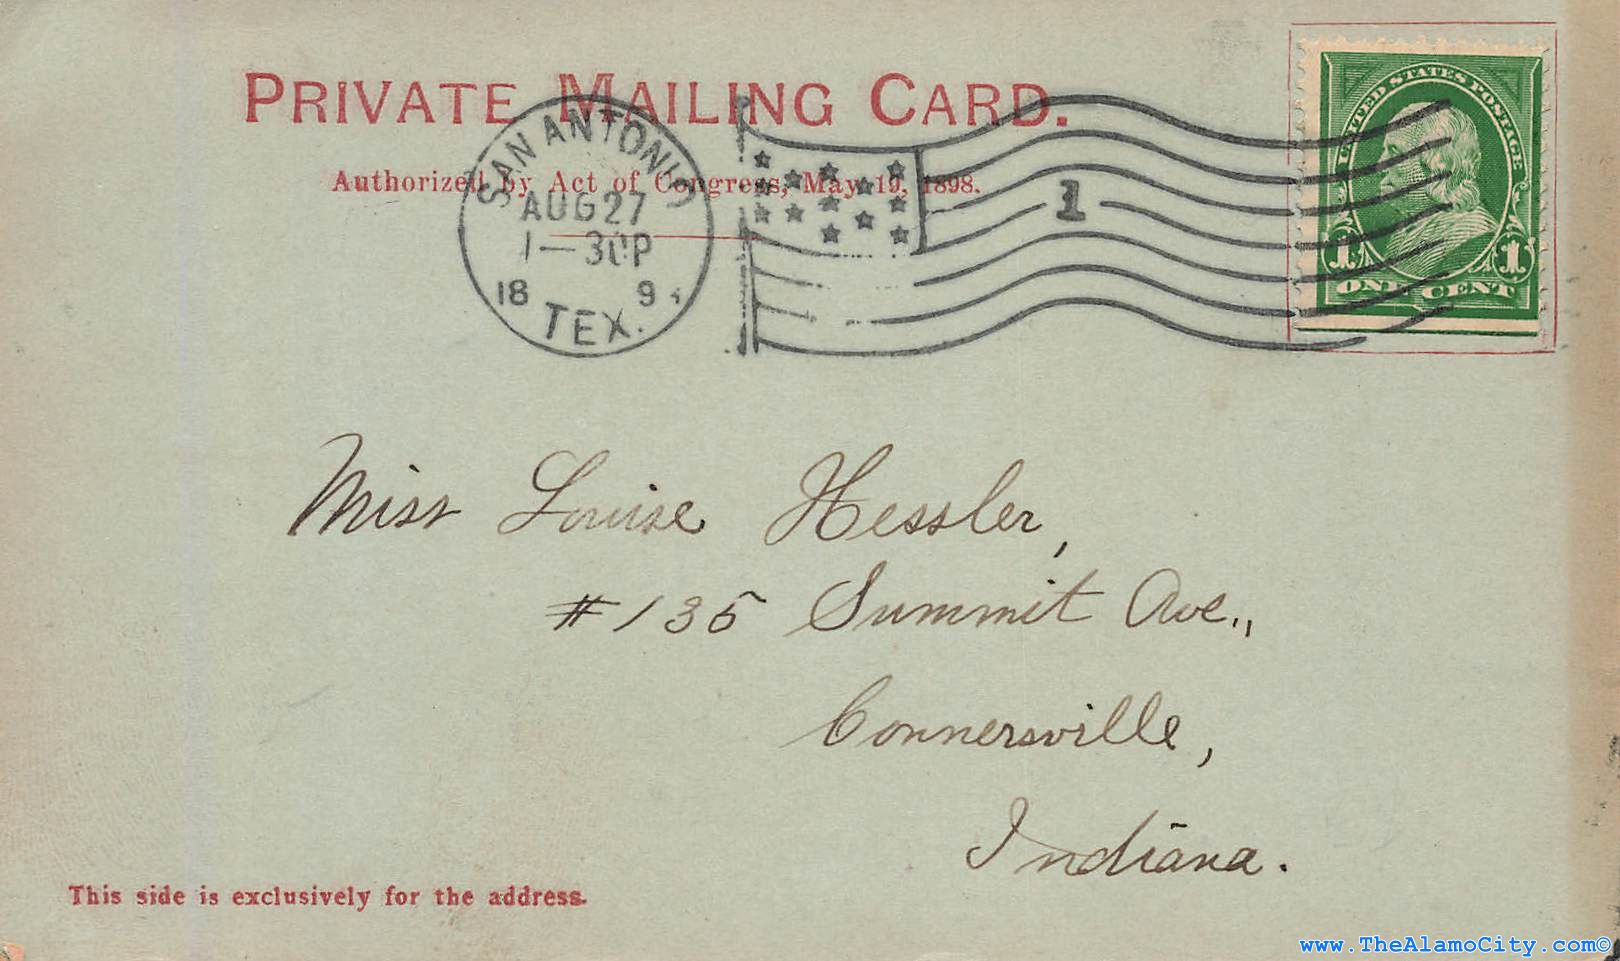 PRIVATE MAILING CARD.
Authorized by Act of Congress, May 19, 1898.
SAN ANTONIO
AUG 27
1—30P
18 9
TEX.
1
UNITED STATES POSTAGE
1 1
ONE CENT
Miss Louise Hessler,
#135 Summit Ave.,
Connersville,
Indiana.
This side is exclusively for the address.
www.TheAlamoCity.com©